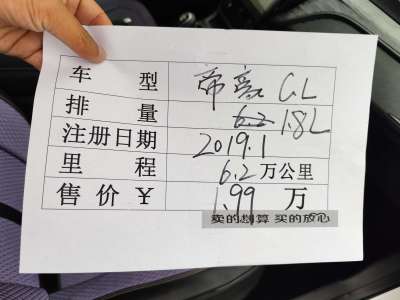 车型 帝豪 GL
排量 6.2 1.8L
注册日期 2019.1
里程 6.2 万公里
售价¥ 1.99 万
卖的划算 买的放心